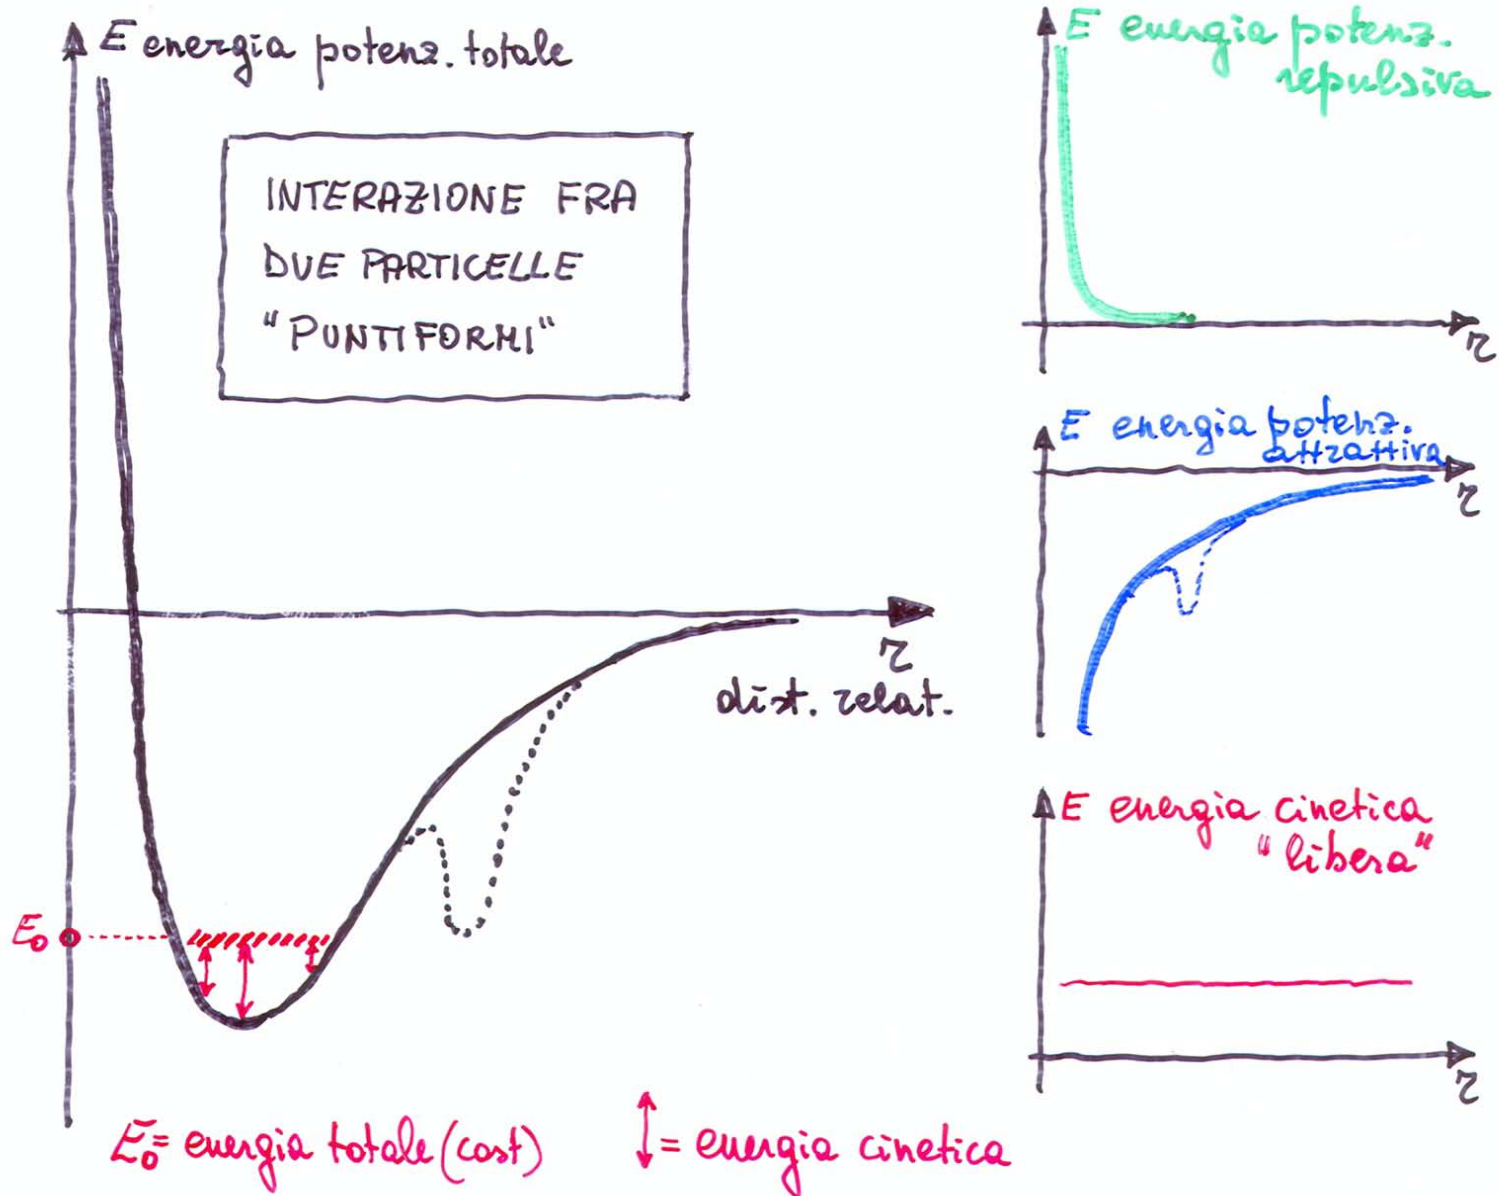 E energia potenz. totale
INTERAZIONE FRA
DUE PARTICELLE
"PUNTIFORMI"
r
dist. relat.
E₀
E₀ = energia totale (cost)
= energia cinetica
E energia potenz.
repulsiva
r
E energia potenz.
attrattiva
r
E energia cinetica
"libera"
r